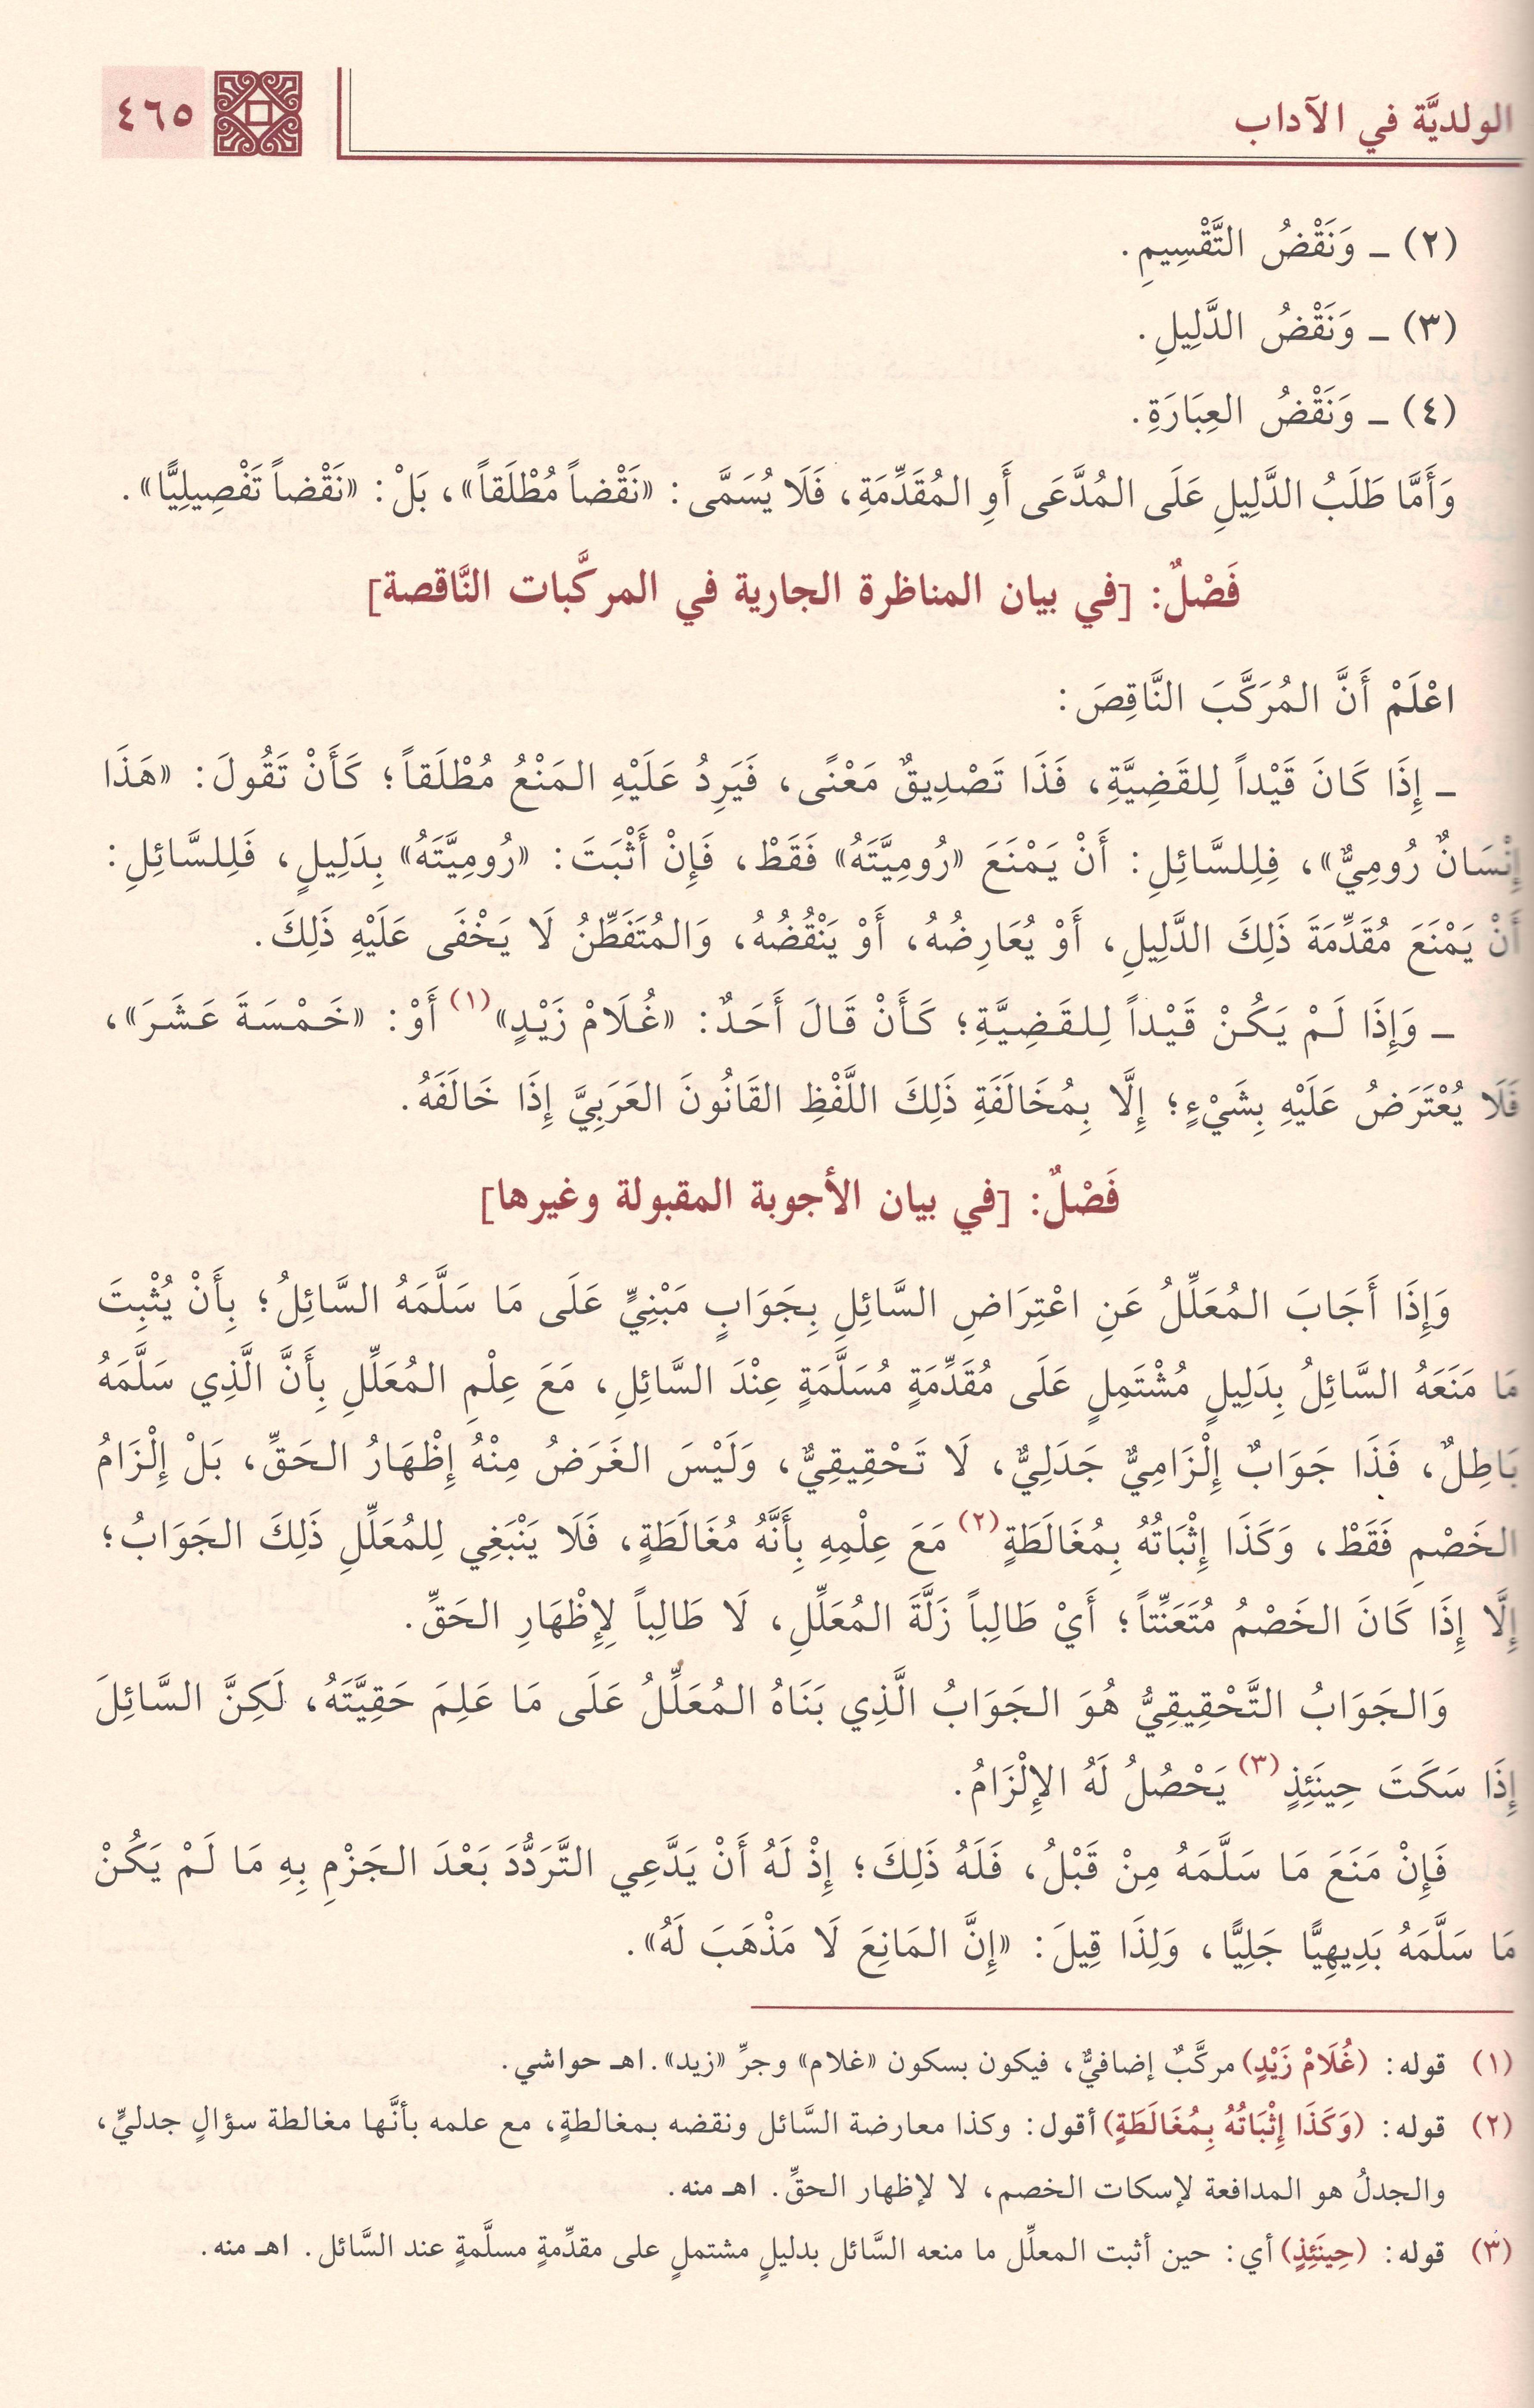 الولديَّة في الآداب
٤٦٥
(٢) ـ وَنَقْضُ التَّقْسِيمِ.
(٣) ـ وَنَقْضُ الدَّلِيلِ.
(٤) ـ وَنَقْضُ العِبَارَةِ.
وَأَمَّا طَلَبُ الدَّلِيلِ عَلَى المُدَّعَى أَوِ المُقَدِّمَةِ، فَلَا يُسَمَّى: «نَقْضاً مُطْلَقاً»، بَلْ: «نَقْضاً تَفْصِيلِيًّا».
فَصْلٌ: [في بيان المناظرة الجارية في المركَّبات النَّاقصة]
اعْلَمْ أَنَّ المُرَكَّبَ النَّاقِصَ:
ـ إِذَا كَانَ قَيْداً لِلقَضِيَّةِ، فَذَا تَصْدِيقٌ مَعْنًى، فَيَرِدُ عَلَيْهِ المَنْعُ مُطْلَقاً؛ كَأَنْ تَقُولَ: «هَذَا
إِنْسَانٌ رُومِيٌّ»، فِلِلسَّائِلِ: أَنْ يَمْنَعَ «رُومِيَّتَهُ» فَقَطْ، فَإِنْ أَثْبَتَ: «رُومِيَّتَهُ» بِدَلِيلٍ، فَلِلسَّائِلِ:
أَنْ يَمْنَعَ مُقَدِّمَةَ ذَلِكَ الدَّلِيلِ، أَوْ يُعَارِضُهُ، أَوْ يَنْقُضُهُ، وَالمُتَفَطِّنُ لَا يَخْفَى عَلَيْهِ ذَلِكَ.
ـ وَإِذَا لَمْ يَكُنْ قَيْداً لِلقَضِيَّةِ؛ كَأَنْ قَالَ أَحَدٌ: «غُلَامْ زَيْدٍ»(١) أَوْ: «خَمْسَةَ عَشَرَ»،
فَلَا يُعْتَرَضُ عَلَيْهِ بِشَيْءٍ؛ إِلَّا بِمُخَالَفَةِ ذَلِكَ اللَّفْظِ القَانُونَ العَرَبِيَّ إِذَا خَالَفَهُ.
فَصْلٌ: [في بيان الأجوبة المقبولة وغيرها]
وَإِذَا أَجَابَ المُعَلِّلُ عَنِ اعْتِرَاضِ السَّائِلِ بِجَوَابٍ مَبْنِيٍّ عَلَى مَا سَلَّمَهُ السَّائِلُ؛ بِأَنْ يُثْبِتَ
مَا مَنَعَهُ السَّائِلُ بِدَلِيلٍ مُشْتَمِلٍ عَلَى مُقَدِّمَةٍ مُسَلَّمَةٍ عِنْدَ السَّائِلِ، مَعَ عِلْمِ المُعَلِّلِ بِأَنَّ الَّذِي سَلَّمَهُ
بَاطِلٌ، فَذَا جَوَابٌ إِلْزَامِيٌّ جَدَلِيٌّ، لَا تَحْقِيقِيٌّ، وَلَيْسَ الغَرَضُ مِنْهُ إِظْهَارُ الحَقِّ، بَلْ إِلْزَامُ
الخَصْمِ فَقَطْ، وَكَذَا إِثْبَاتُهُ بِمُغَالَطَةٍ(٢) مَعَ عِلْمِهِ بِأَنَّهُ مُغَالَطَةٍ، فَلَا يَنْبَغِي لِلمُعَلِّلِ ذَلِكَ الجَوَابُ؛
إِلَّا إِذَا كَانَ الخَصْمُ مُتَعَنِّتاً؛ أَيْ طَالِباً زَلَّةَ المُعَلِّلِ، لَا طَالِباً لِإِظْهَارِ الحَقِّ.
وَالجَوَابُ التَّحْقِيقِيُّ هُوَ الجَوَابُ الَّذِي بَنَاهُ المُعَلِّلُ عَلَى مَا عَلِمَ حَقِيَّتَهُ، لَكِنَّ السَّائِلَ
إِذَا سَكَتَ حِينَئِذٍ(٣) يَحْصُلُ لَهُ الإِلْزَامُ.
فَإِنْ مَنَعَ مَا سَلَّمَهُ مِنْ قَبْلُ، فَلَهُ ذَلِكَ؛ إِذْ لَهُ أَنْ يَدَّعِي التَّرَدُّدَ بَعْدَ الجَزْمِ بِهِ مَا لَمْ يَكُنْ
مَا سَلَّمَهُ بَدِيهِيًّا جَلِيًّا، وَلِذَا قِيلَ: «إِنَّ المَانِعَ لَا مَذْهَبَ لَهُ».
(١) قوله: (غُلَامْ زَيْدٍ) مركَّبٌ إضافيٌّ، فيكون بسكون «غلام» وجرِّ «زيد». اهـ حواشي.
(٢) قوله: (وَكَذَا إِثْبَاتُهُ بِمُغَالَطَةٍ) أقول: وكذا معارضة السَّائل ونقضه بمغالطةٍ، مع علمه بأنَّها مغالطة سؤالٍ جدليٍّ،
والجدلُ هو المدافعة لإسكات الخصم، لا لإظهار الحقِّ. اهـ منه.
(٣) قوله: (حِينَئِذٍ) أي: حين أثبت المعلِّل ما منعه السَّائل بدليلٍ مشتملٍ على مقدِّمةٍ مسلَّمةٍ عند السَّائل. اهـ منه.